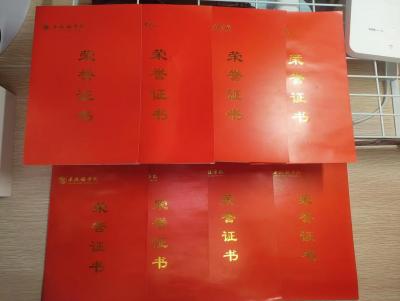 荣誉证书
荣誉证书
荣誉证书
荣誉证书
荣誉证书
荣誉证书
荣誉证书
荣誉证书